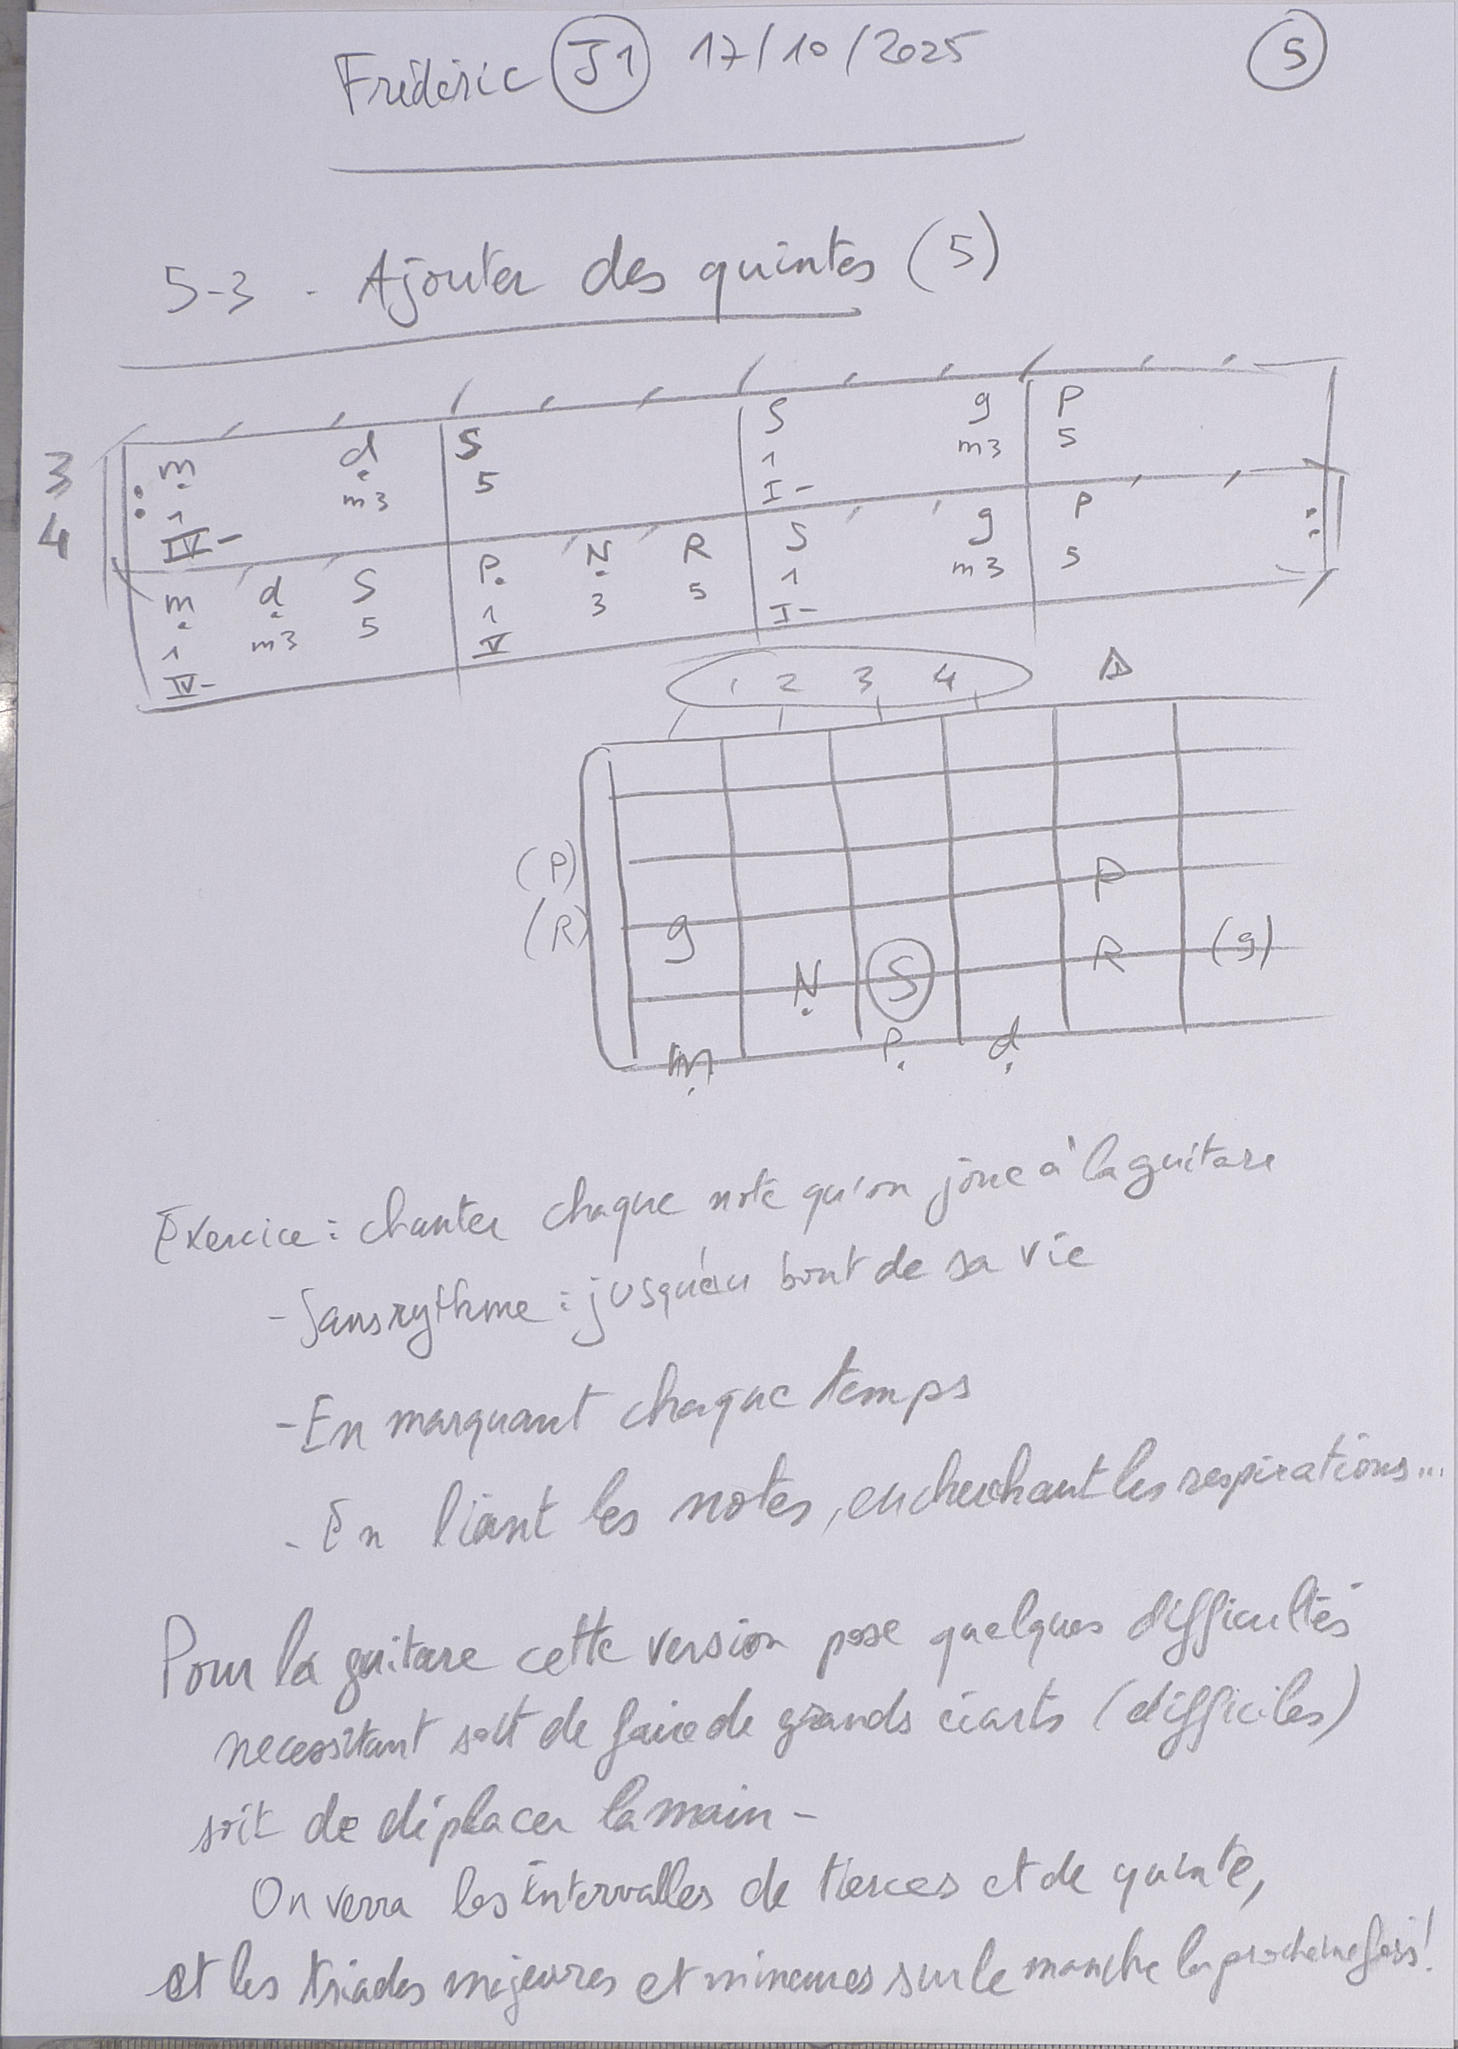 Frédéric J1 17/10/2025 5
5-3 - Ajouter des quintes (5)
3 m d S S g P
1 m3 5 1 m3 5
IV- I-
4 m d S P N R S g P
1 m3 5 1 3 5 1 m3 5
IV- V I-
1 2 3 4
(P) P
(R) g R (g)
N S
m P d
Exercice : chanter chaque note qu'on joue à la guitare
- Sans rythme : jusqu'au bout de sa vie
- En marquant chaque temps
- En liant les notes, en cherchant les respirations...
Pour la guitare cette version pose quelques difficultés
necessitant soit de faire de grands écarts (difficiles)
soit de déplacer la main -
On verra les intervalles de tierces et de quinte,
et les triades majeures et mineures sur le manche la prochaine fois !